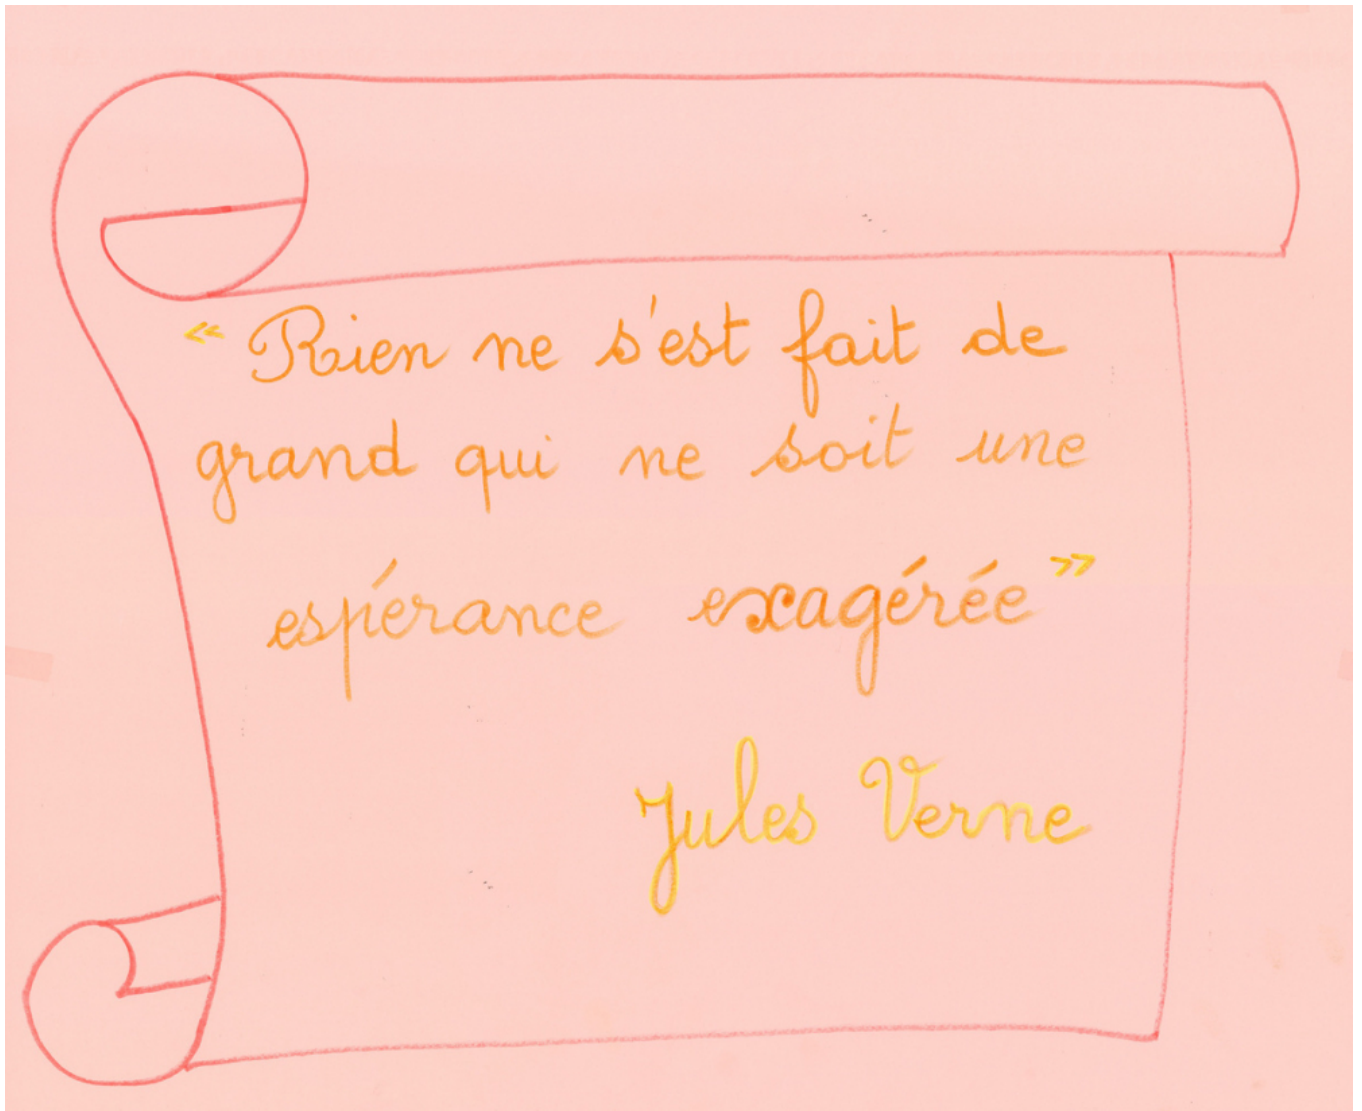 « Rien ne s'est fait de
grand qui ne soit une
espérance exagérée »
Jules Verne